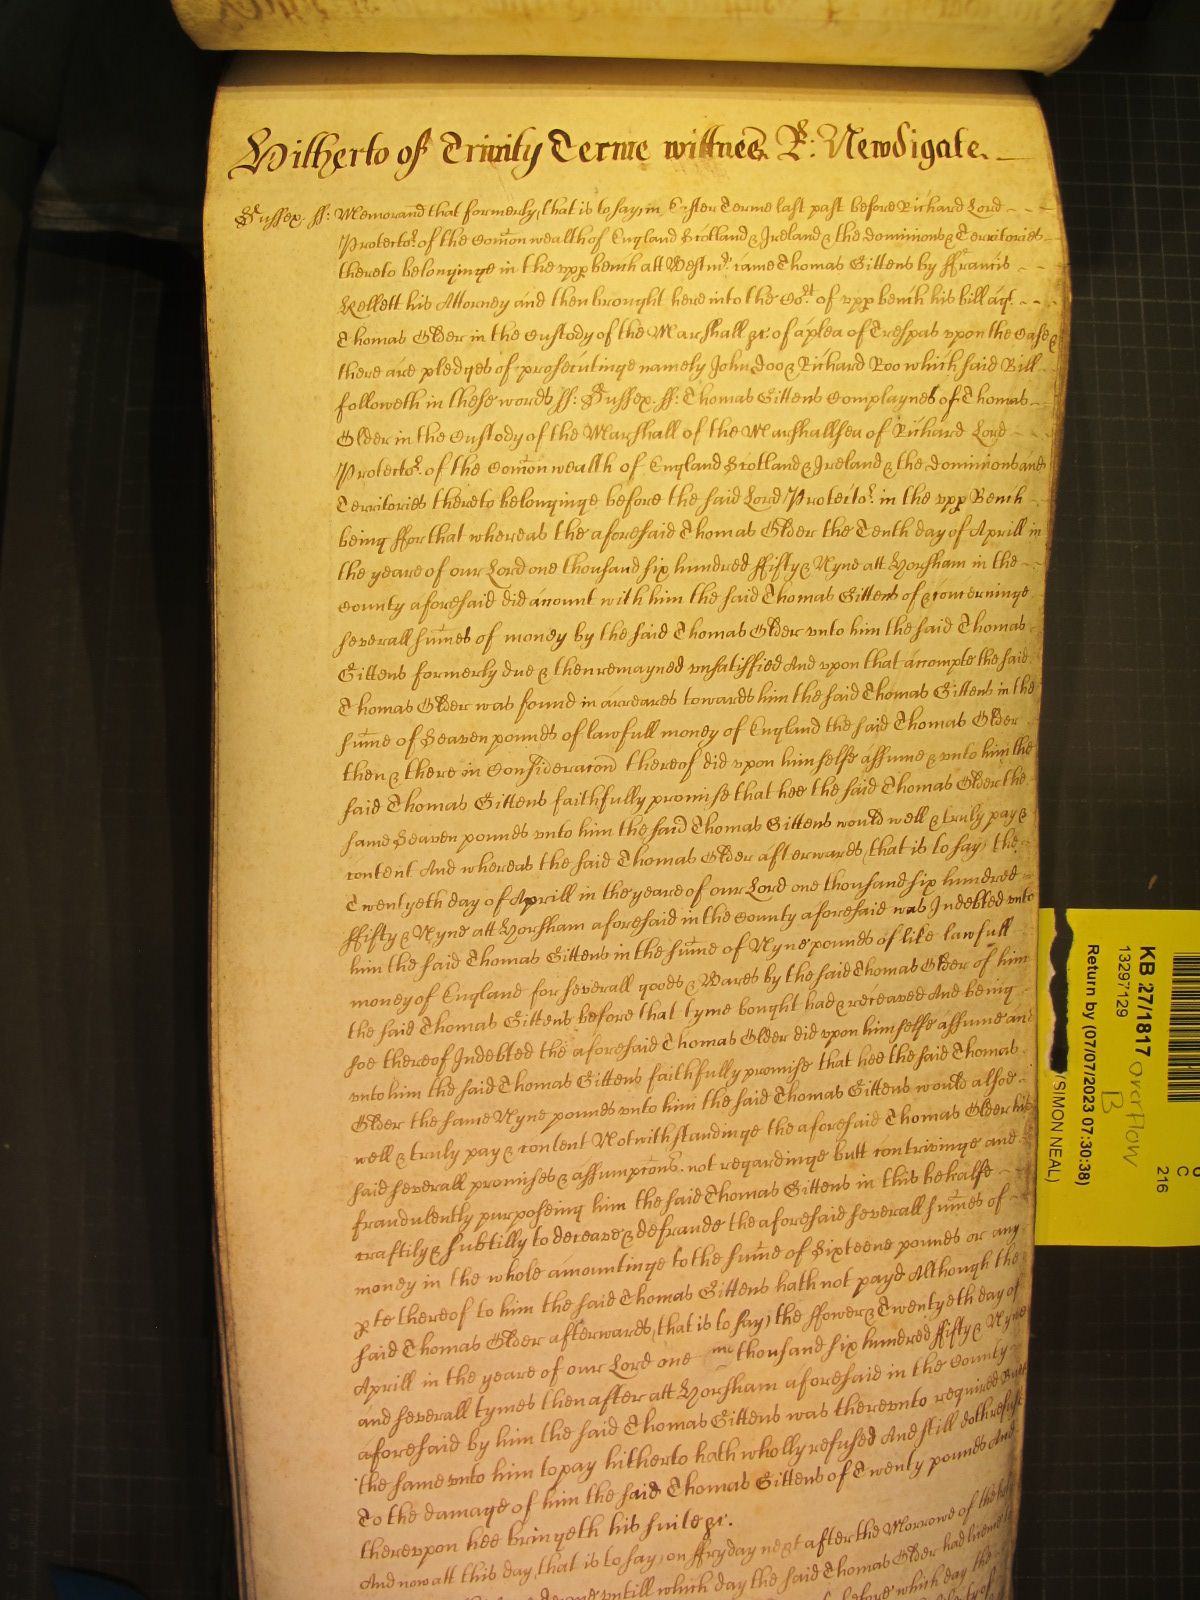 Hitherto of Trinity Terme wittnes R: Newdigate.
Sussex. ss: Memorand that formerly, that is to say, in Easter Terme last past before Richard Lord
Protector of the Comon wealth of England Scotland & Ireland & the dominions & Territories
thereto belonginge in the upp bench att Westmr. came Thomas Gittens by Ffrancis
Kellett his Attorney and then brought here into the Cort of upp bench his bill agt.
Thomas Older in the Custody of the Marshall &c. of a plea of Trespas upon the Case &
there are pledges of prosecutinge namely John Doo & Richard Roo which said Bill
followeth in these words ss: Sussex. ss: Thomas Gittens Complaynes of Thomas
Older in the Custody of the Marshall of the Marshallsea of Richard Lord
Protector. of the Comon wealth of England Scotland & Ireland & the dominions and
Territories thereto belonginge before the said Lord Protector. in the upp Bench
being ffor that whereas the aforesaid Thomas Older the Tenth day of Aprill in
the yeare of our Lord one thousand six hundred ffifty & Nyne att Horsham in the
County aforesaid did account with him the said Thomas Gittens of & concerninge
severall sumes of money by the said Thomas Older unto him the said Thomas
Gittens formerly due & then remayned unsatisfied And upon that accompte the said
Thomas Older was found in arreares towards him the said Thomas Gittens in the
sume of Seaven pounds of lawfull money of England the said Thomas Older
then & there in Consideracon thereof did upon himselfe assume & unto him the
said Thomas Gittens faithfully promise that hee the said Thomas Older the
same Seaven pounds unto him the said Thomas Gittens would well & truly pay &
content And whereas the said Thomas Older afterwards, that is to say, the
Twentyeth day of Aprill in the yeare of our Lord one thousand six hundred
ffifty & Nyne att Horsham aforesaid in the County aforesaid was Indebted unto
him the said Thomas Gittens in the sume of Nyne pounds of like lawfull
money of England for severall goods & Wares by the said Thomas Older of him
the said Thomas Gittens before that tyme bought had & receaved And being
soe thereof Indebted the aforesaid Thomas Older did upon himselfe assume and
unto him the said Thomas Gittens faithfully promise that hee the said Thomas
Older the same Nyne pounds unto him the said Thomas Gittens would alsoe
well & truly pay & content Notwithstandinge the aforesaid Thomas Older his
said severall promises & assumpcons. not regardinge butt contrivinge and
fraudulently purposeing him the said Thomas Gittens in this behalfe
craftily & subtilly to deceave & defraude the aforesaid severall sumes of
money in the whole amountinge to the sume of Sixteene pounds or any
pte thereof to him the said Thomas Gittens hath not payd Although the
said Thomas Older afterwards, that is to say, the ffower & Twentyeth day of
Aprill in the yeare of our Lord one thousand six hundred ffifty & Nyne
and severall tymes then after att Horsham aforesaid in the County
aforesaid by him the said Thomas Gittens was thereunto required Butt
the same unto him to pay hitherto hath wholly refused And still doth refuse
To the damage of him the said Thomas Gittens of Twenty pounds And
thereupon hee bringeth his suite &c.
And now att this day, that is to say, on ffryday next after the Morrowe of the holy
untill which day the said Thomas Older had
before which day the
KB 27/1817 overflow
B
13297129
Return by (07/07/2023 07:30:38)
(SIMON NEAL)
C
216